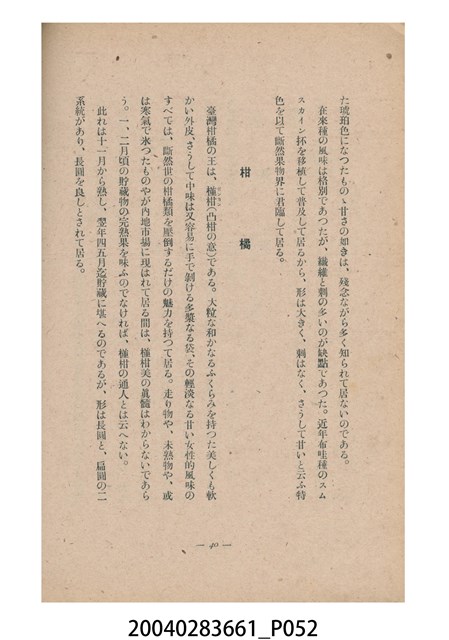 た琥珀色になつたものゝ甘さの如きは、殘念ながら多く知られて居ないのである。
在來種の風味は格別であつたが、纖維と刺の多いのが缺點であつた。近年布哇種のスム
スカイン抔を移植して普及して居るから、形は大きく、刺はなく、さうして甘いと云ふ特
色を以て斷然果物界に君臨して居る。
柑橘
臺灣柑橘の王は、椪柑(凸柑の意)である。大粒な和かなるふくらみを持つた美しくも軟
かい外皮、さうして中味は又容易に手で剝ける多漿なる袋、その輕淡なる甘い女性的風味の
すべては、斷然世の柑橘類を壓倒するだけの魅力を持つて居る。走り物や、未熟物や、或
は寒氣で氷つたものやが內地市場に現はれて居る間は、椪柑美の眞髓はわからないであら
う。一、二月頃の貯藏物の完熟果を味ふのでなければ、椪柑の通人とは云へない。
此れは十一月から熟し、翌年四五月迄貯藏に堪へるのであるが、形は長圓と、扁圓の二
系統があり、長圓を良しとされて居る。
— 40 —
20040283661_P052